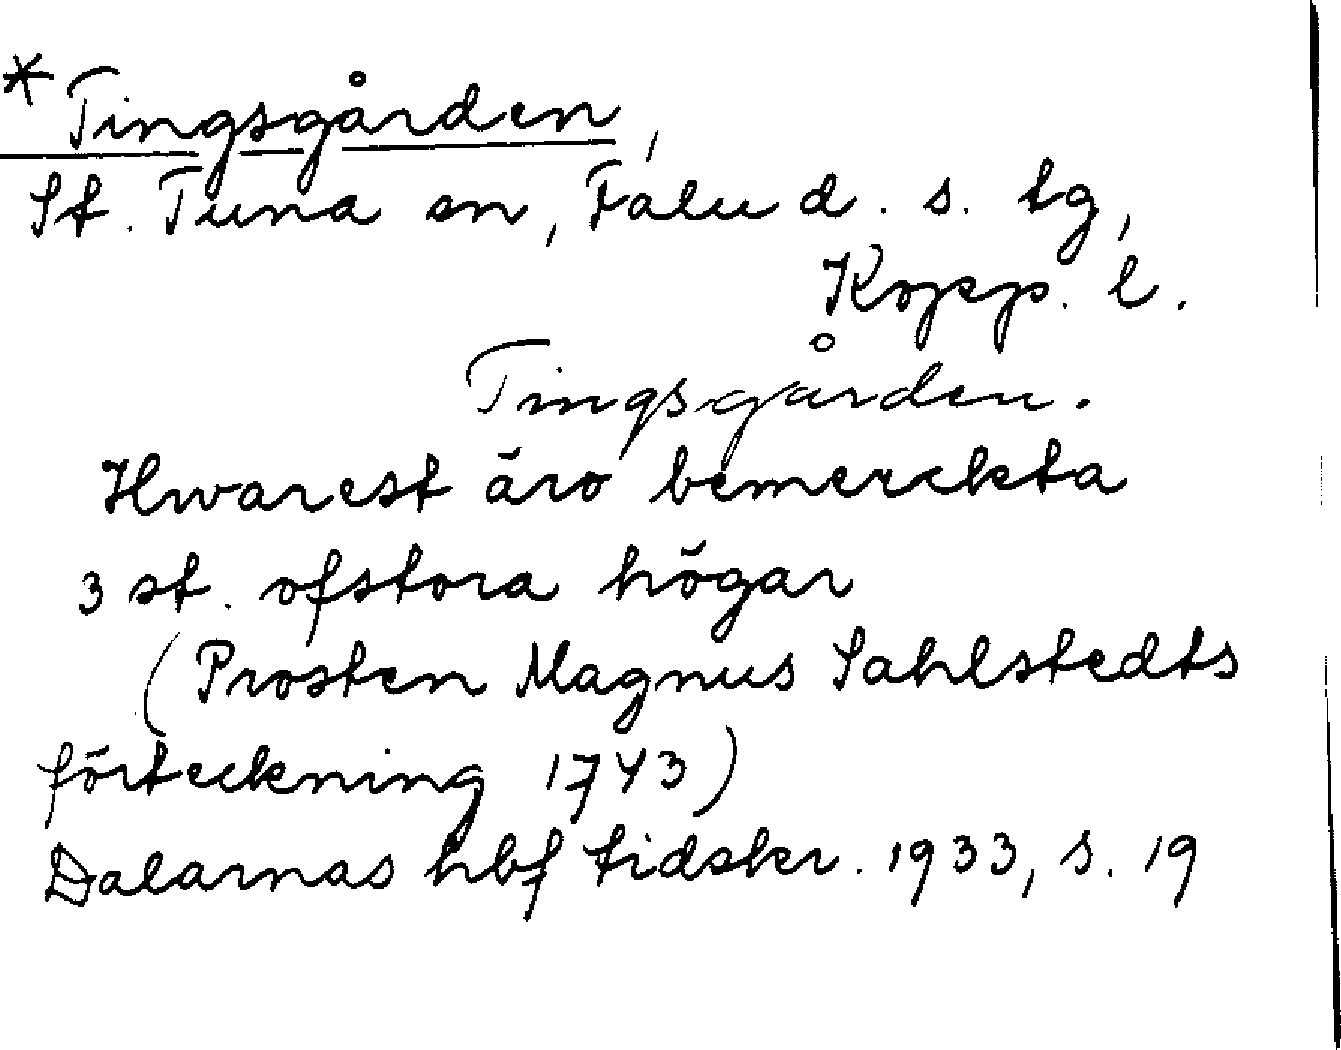 * Tingsgården,
St. Tuna sn, Falu d. s. tg,
Kopp. l.
Tingsgården.
Hwarest äro bemerckta
3 st. ofstora högar
(Prosten Magnus Sahlstedts
förteckning 1743)
Dalarnas hbf tidskr. 1933, s. 19